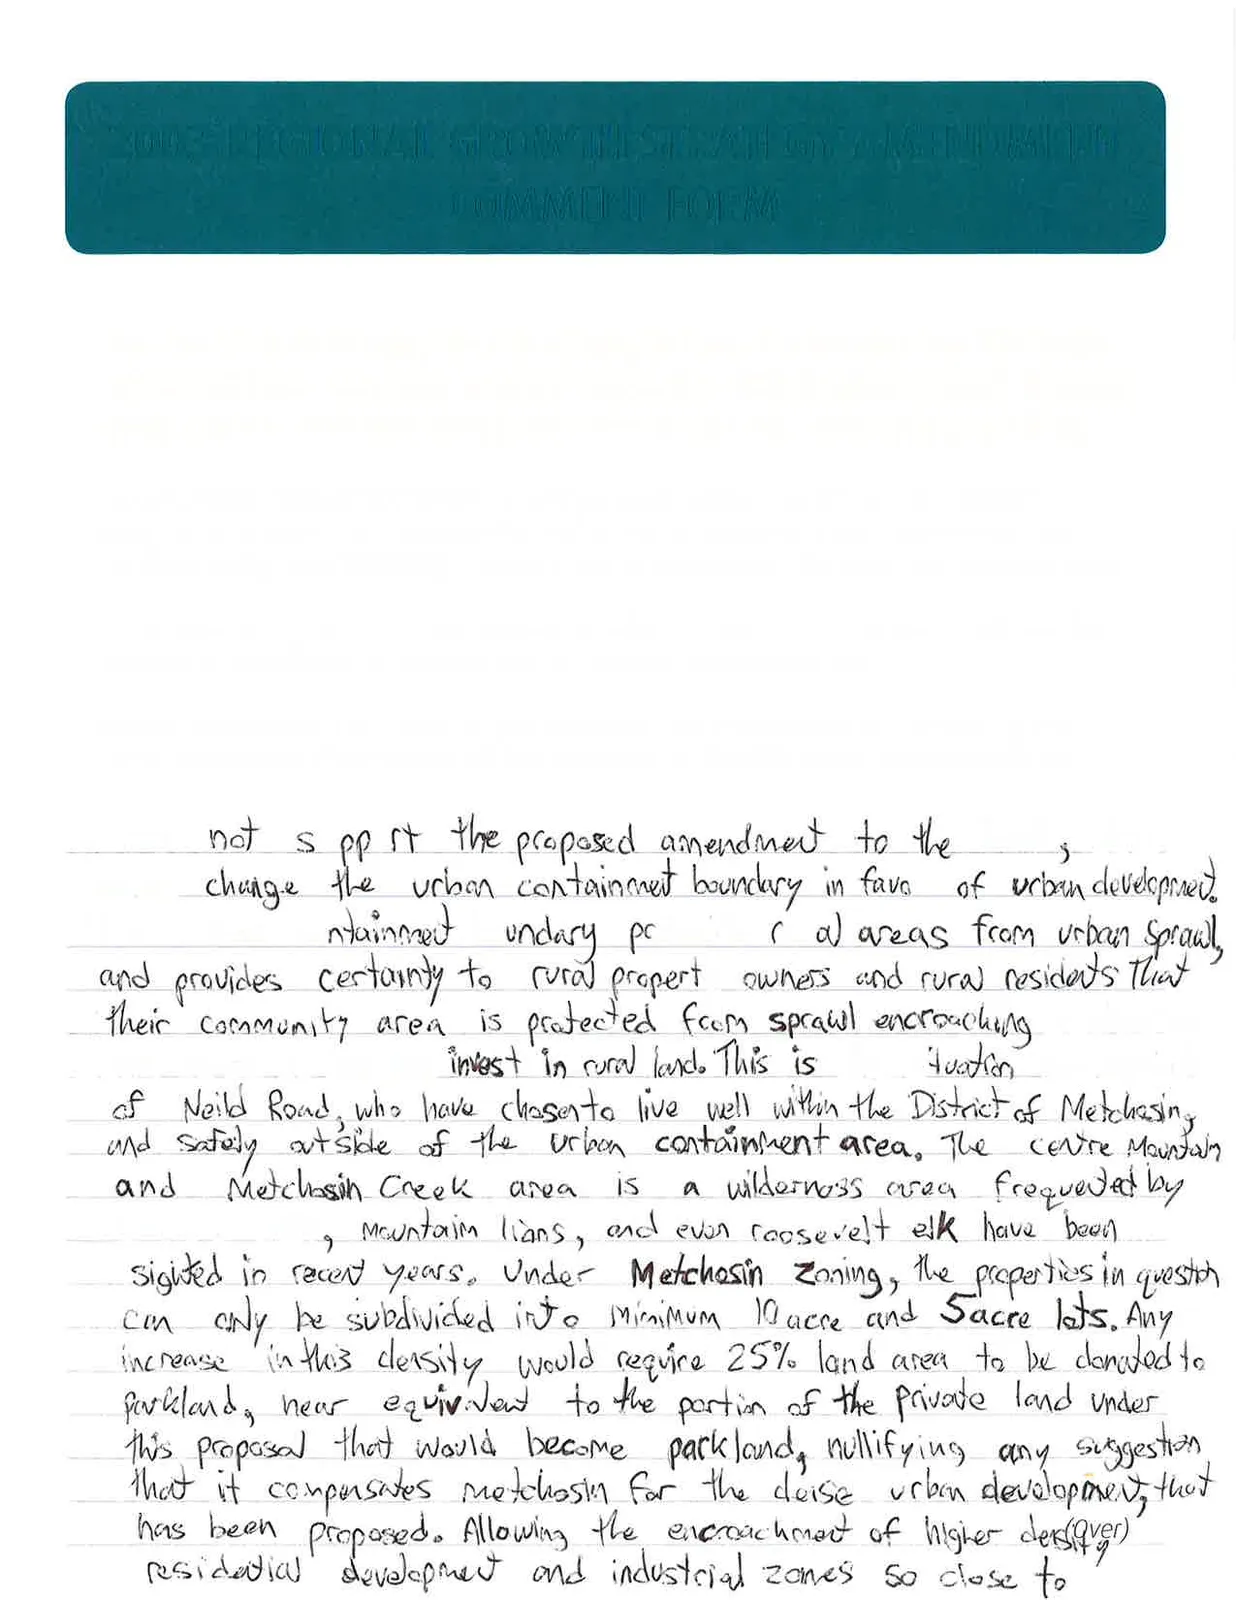 2003 REGIONAL GROWTH STRATEGY AMENDMENT
COMMENT FORM
not s pp rt the proposed amendment to the ,
change the urban containment boundary in favo of urban development.
ntainment undary al areas from urban sprawl,
and provides certainty to rural propert owners and rural residents that
their community area is protected from sprawl encroaching
invest in rural land. This is ituation
of Neild Road, who have chosen to live well within the District of Metchosin,
and safely outside of the urban containment area. The centre Mountain
and Metchosin Creek area is a wilderness area frequented by
, mountain lions, and even roosevelt elk have been
sighted in recent years. Under Metchosin Zoning, the properties in question
can only be subdivided into minimum 10 acre and 5 acre lots. Any
increase in this density would require 25% land area to be donated to
parkland, near equivalent to the portion of the private land under
this proposal that would become parkland, nullifying any suggestion
that it compensates metchosin for the dense urban development, that
has been proposed. Allowing the encroachment of higher density (over)
residential development and industrial zones so close to